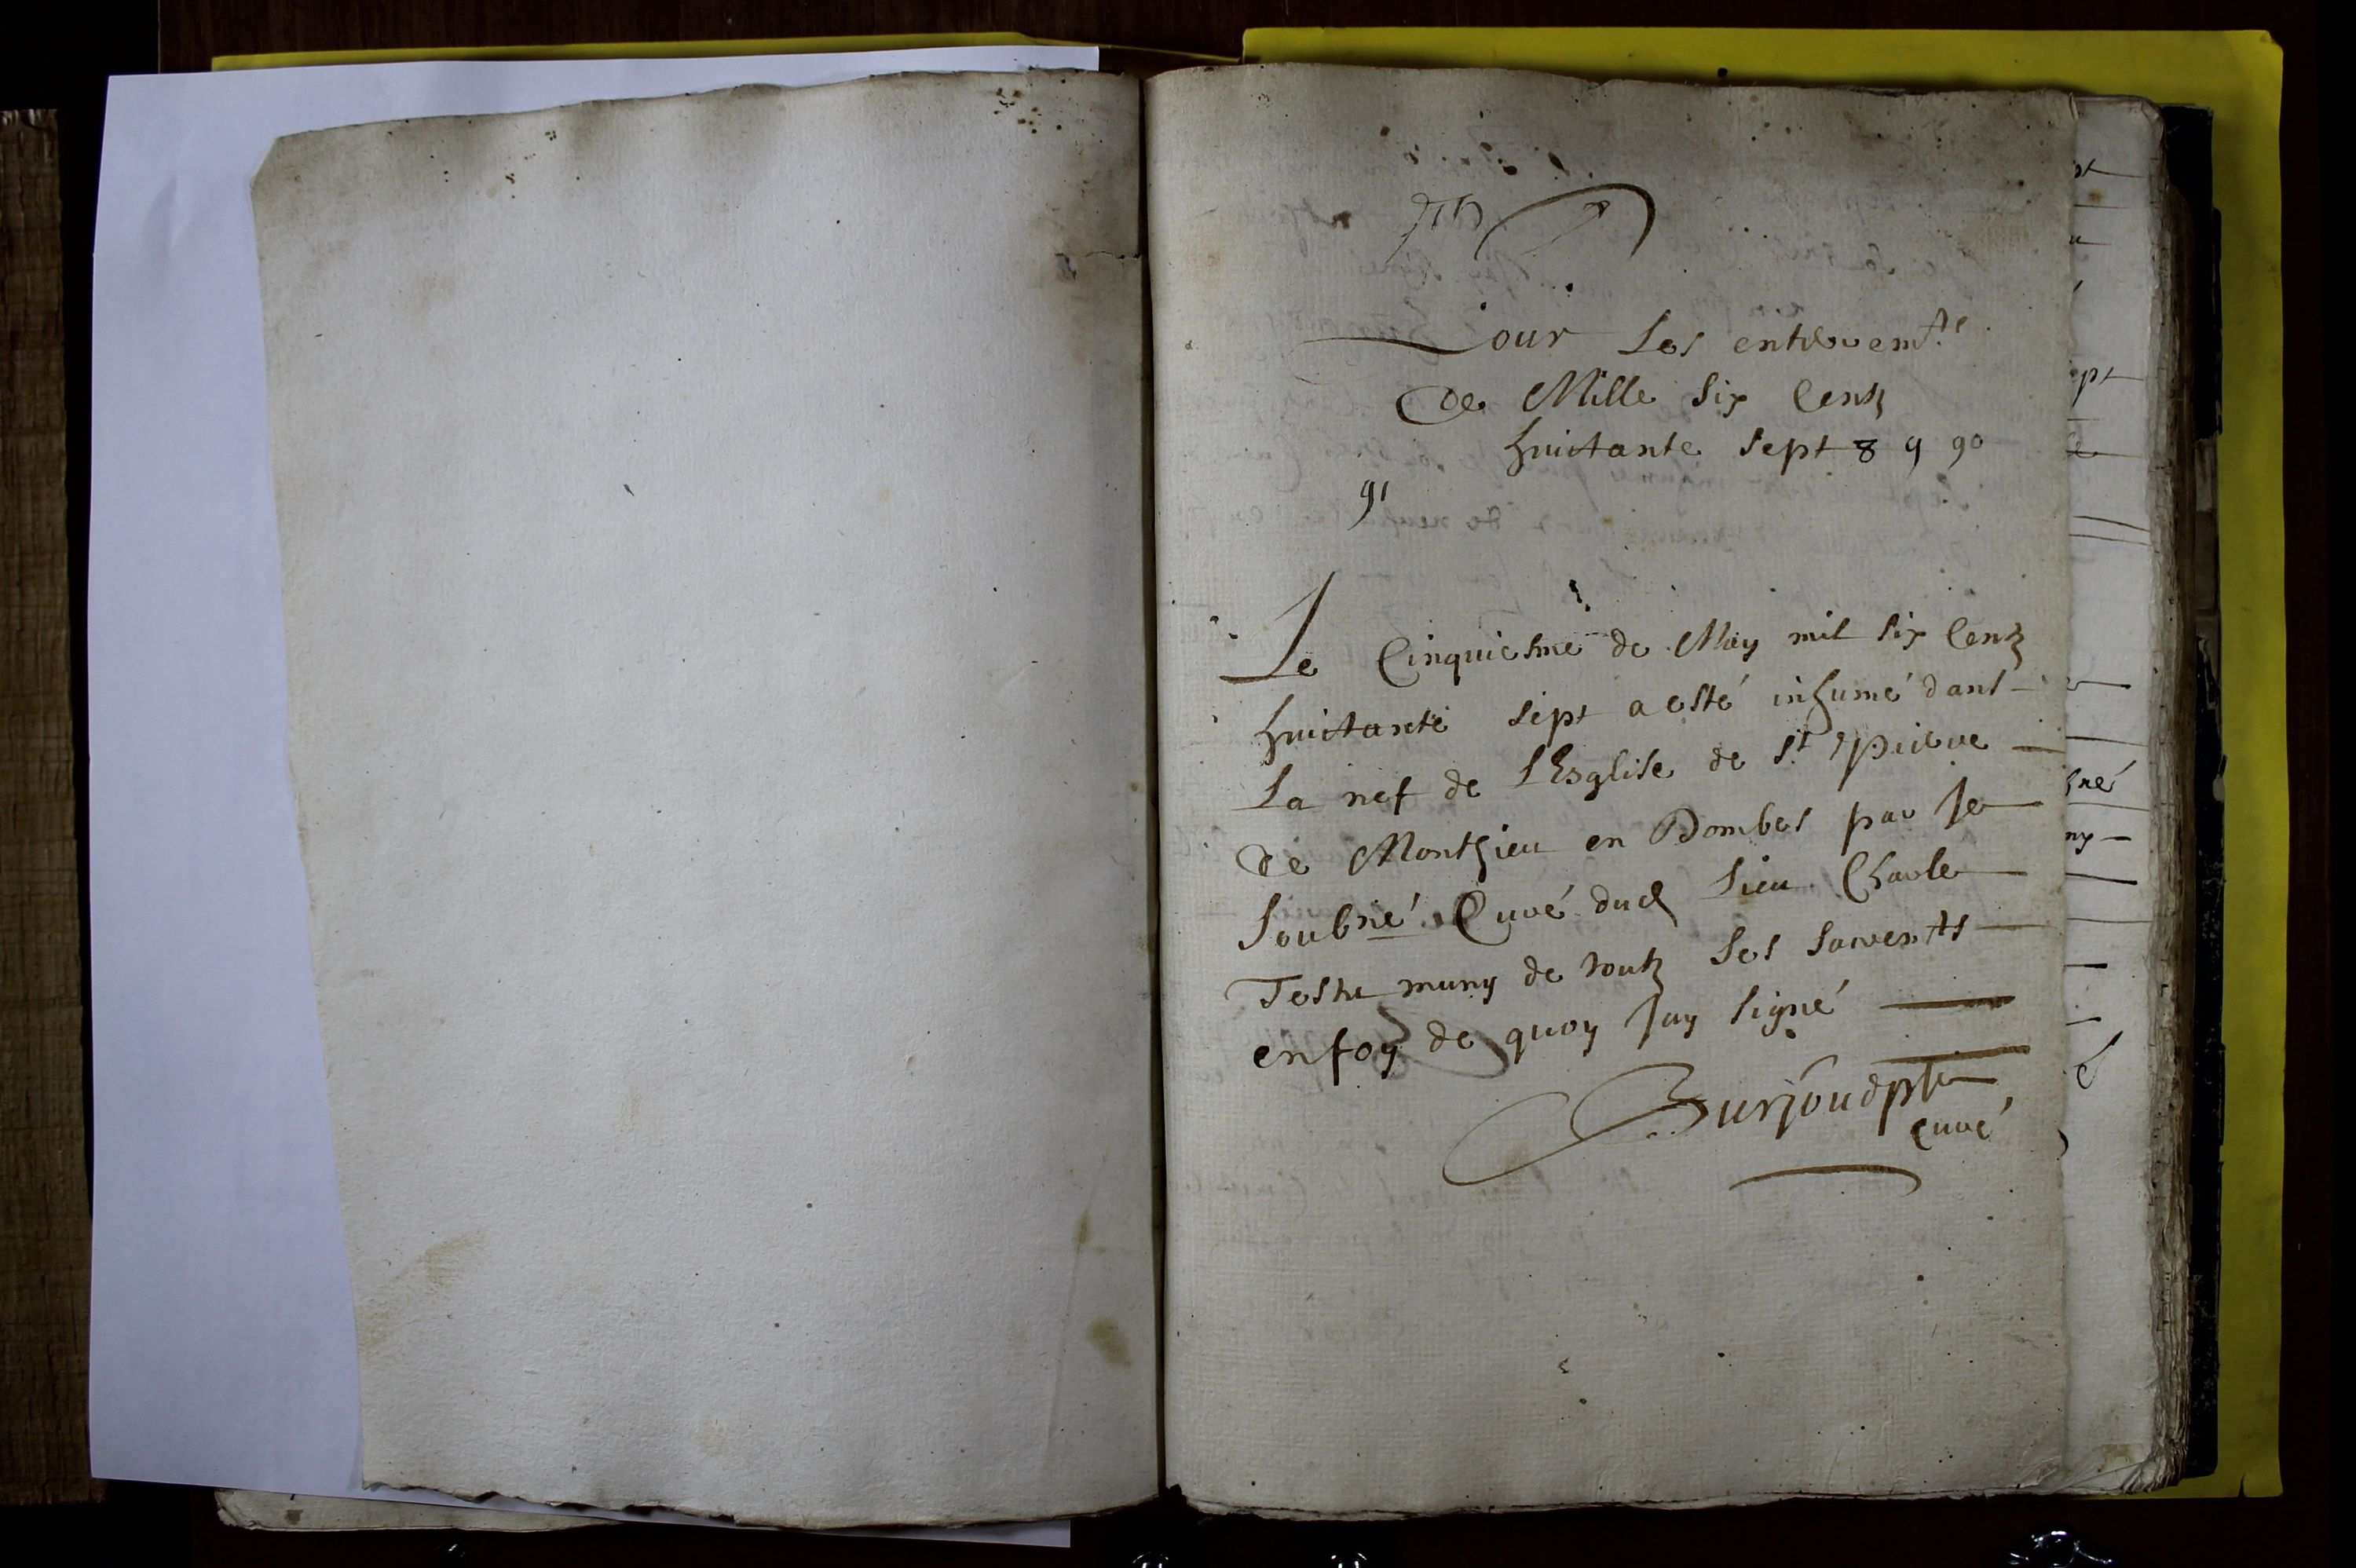 Pour les enterrem.ts
de Mille six centz
huictante sept 8 9 90
91
Le Cinquiesme de May mil six centz
huictante sept a esté inhumé dans
la nef de l'Esglise de St Pierre
de Monthieu en Dombes par Je
soubné Curé dud lieu Charle
Teste muny de toutz les sacrem.ts
en foy de quoy jay signé
Burjoud ptre
curé